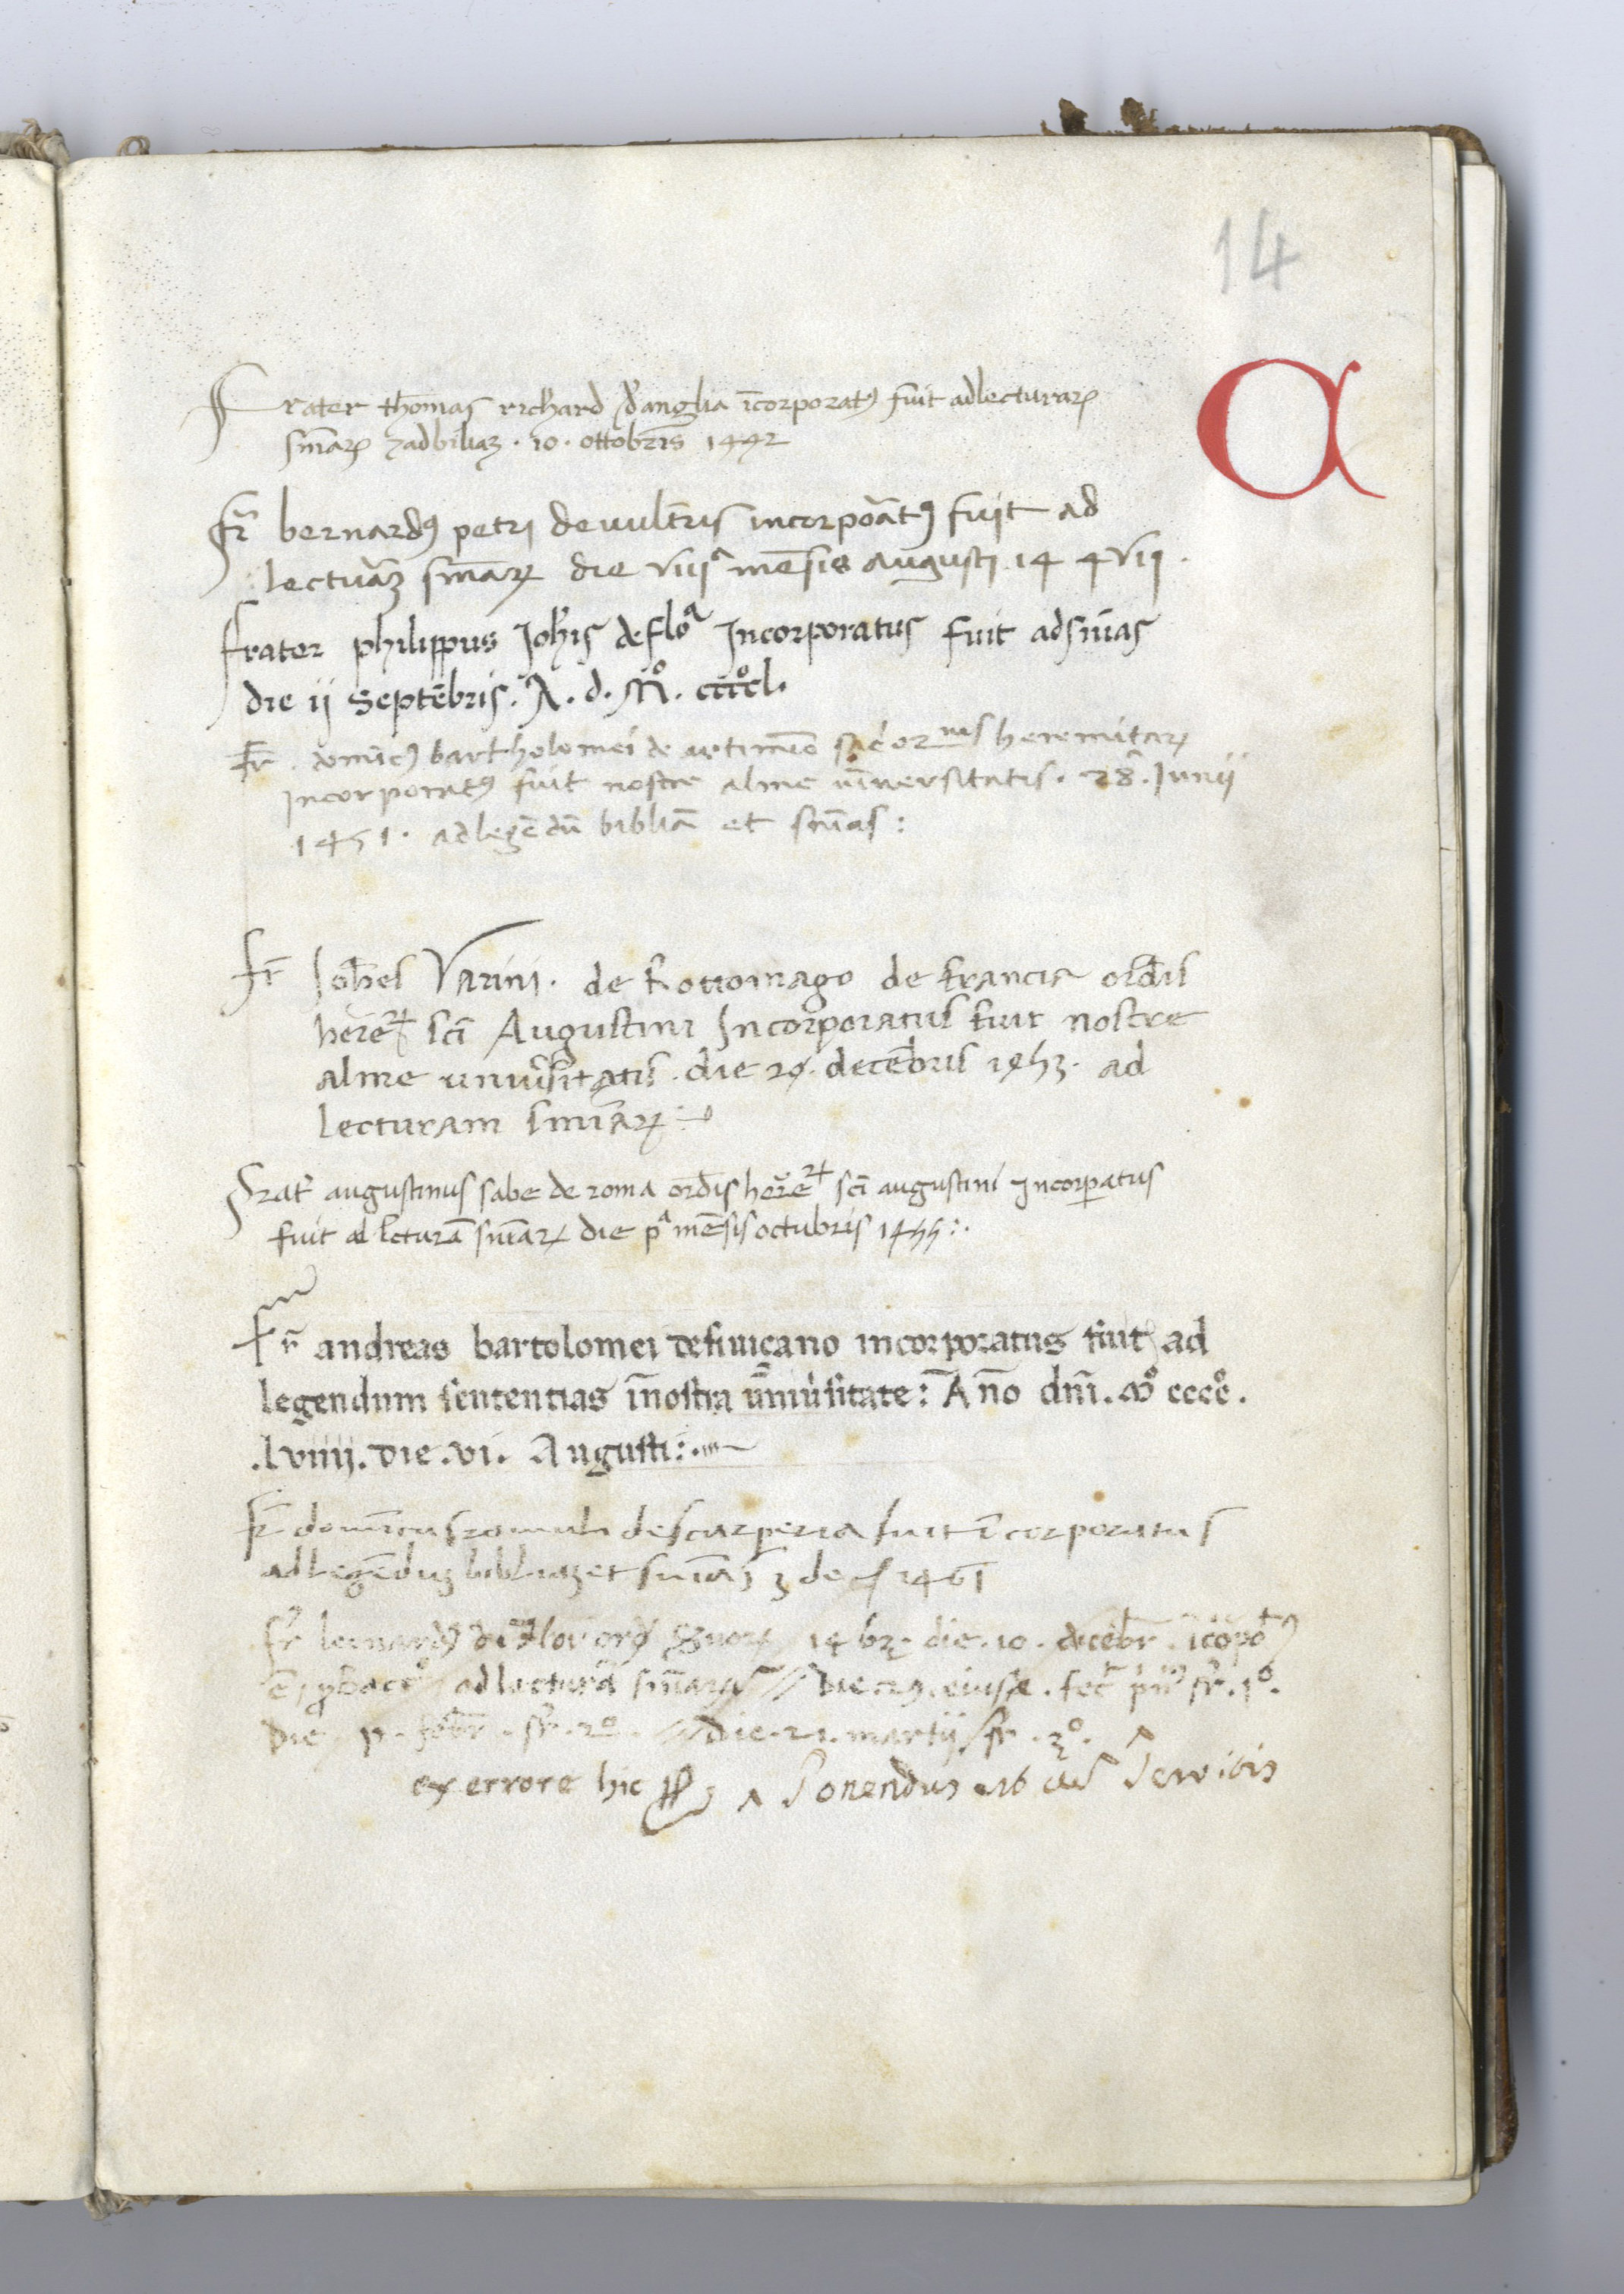 14
A
Frater thomas richard d'anglia īcorporatꝰ fuit ad lecturaꝝ
sniaꝝ ⁊ ad bibliaꝫ · 10 · ottobris 1442
fr̄ bernardꝰ petri de vulteris incorpoātꝰ fuit ad
lectuāꝫ sniaꝝ die viijª mēsis augusti 14 4vij ·
frater philippus Joh̄is de flōª Incorporatus fuit ad snīas
die ij Septēbris · A · d · Mº · ccccºl ·
Fr̄ · domīcꝰ bartholomei de heremitaꝝ
Incorporatꝰ fuit nostre alme ūniversitatis · 28ª · Iunij
1451 · ad legēdū bibliā et snīas :
Fr̄ Joh̄es Varini · de Rottomago de francia ord̄is
herē sc̄i Augustini Incorporatus fuit nostre
alme univ̄sitatis · die 29 · decēbris 1453 · ad
lecturam sniāꝝ :
Frat̄ augustinus sabe de roma ord̄is herē sc̄i augustini Incorꝑatus
fuit ad lcturā snīaꝝ die pª mēsis octubris 1455 :·
Fr̄ andreas bartolomei de fivicano incorporatus fuit ad
legendum sententias ī nostra ūniv̄sitate : Āno dn̄i · Mº ccccº ·
· lviiij · die · vi · Augusti :·
Fr̄ domīcus romuli de scarꝑeria fuit īcorporatus
ad legēduꝫ bibliaꝫ et snīas 3 de 1461
fr̄ bernardꝰ de flor̄ ord̄ · die · 10 · decēbr̄ · īcorpoᵗꝰ
ē ꝓ bacc̄º ad lecturā snīaꝝ // Die · eiusdē · fec̄ prī
Die · febr̄ · · 2º · // die · 21 · martij · 3º ·
ex errore hic ponendus cū servitis